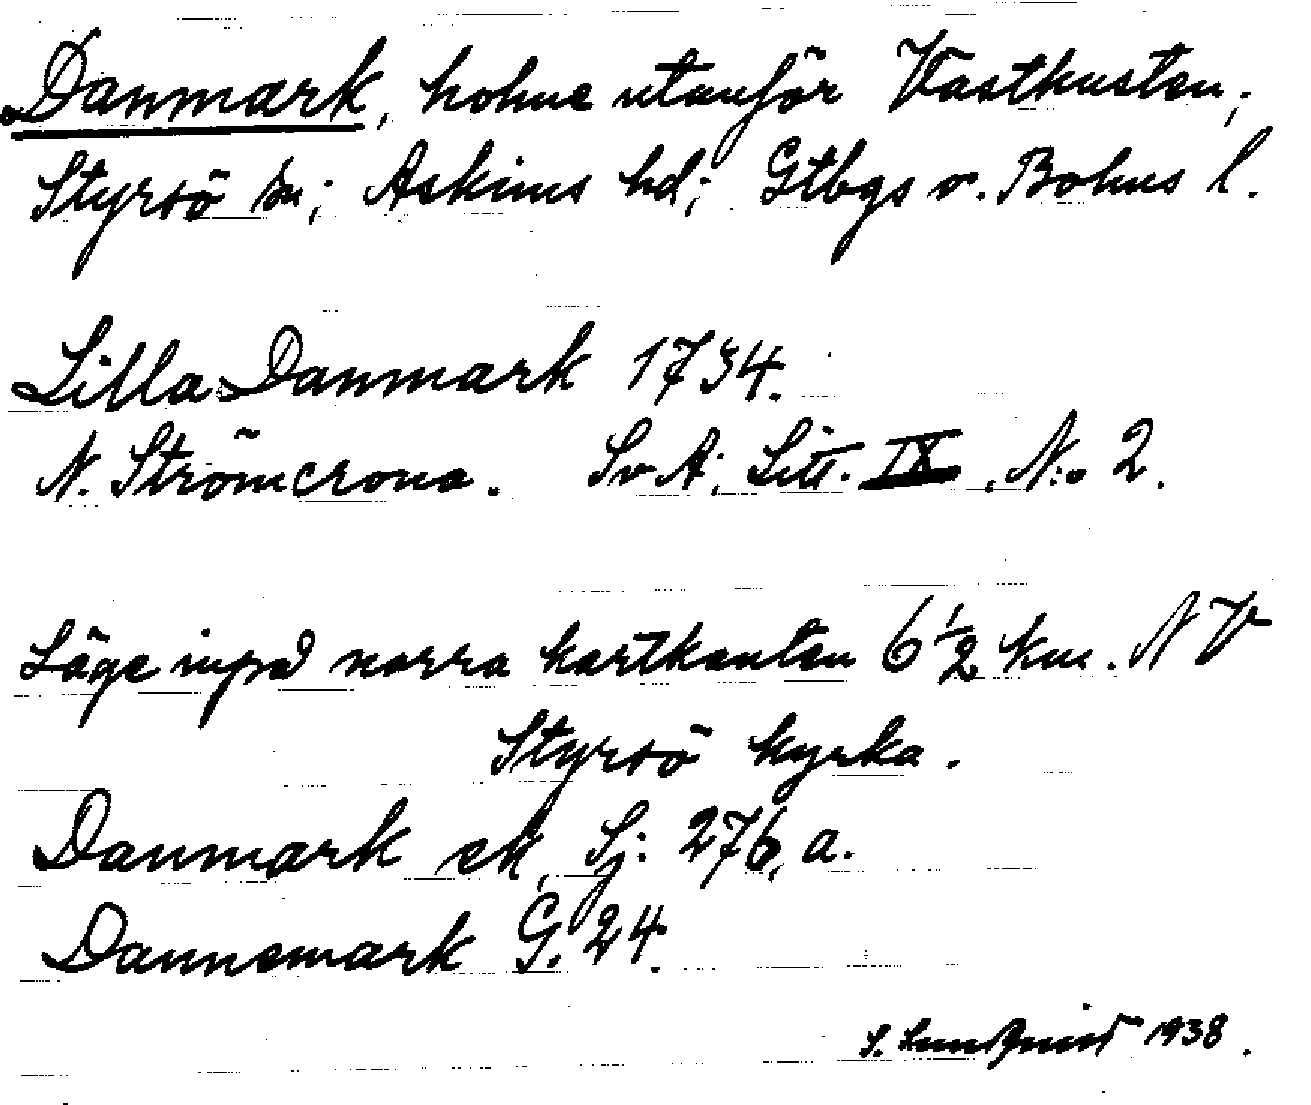 Danmark, holme utanför Västkusten;
Styrsö sn; Askims hd; Gtbgs o. Bohus l.
Lilla Danmark 1734.
N. Strömcrona. SvA; Litt. IX, N:o 2.
Läge inpå norra kartkanten 6 1/2 km. NV
Styrsö kyrka.
Danmark ek, Sj: 276, a.
Dannemark G. 24.
S. Lundquist 1938.